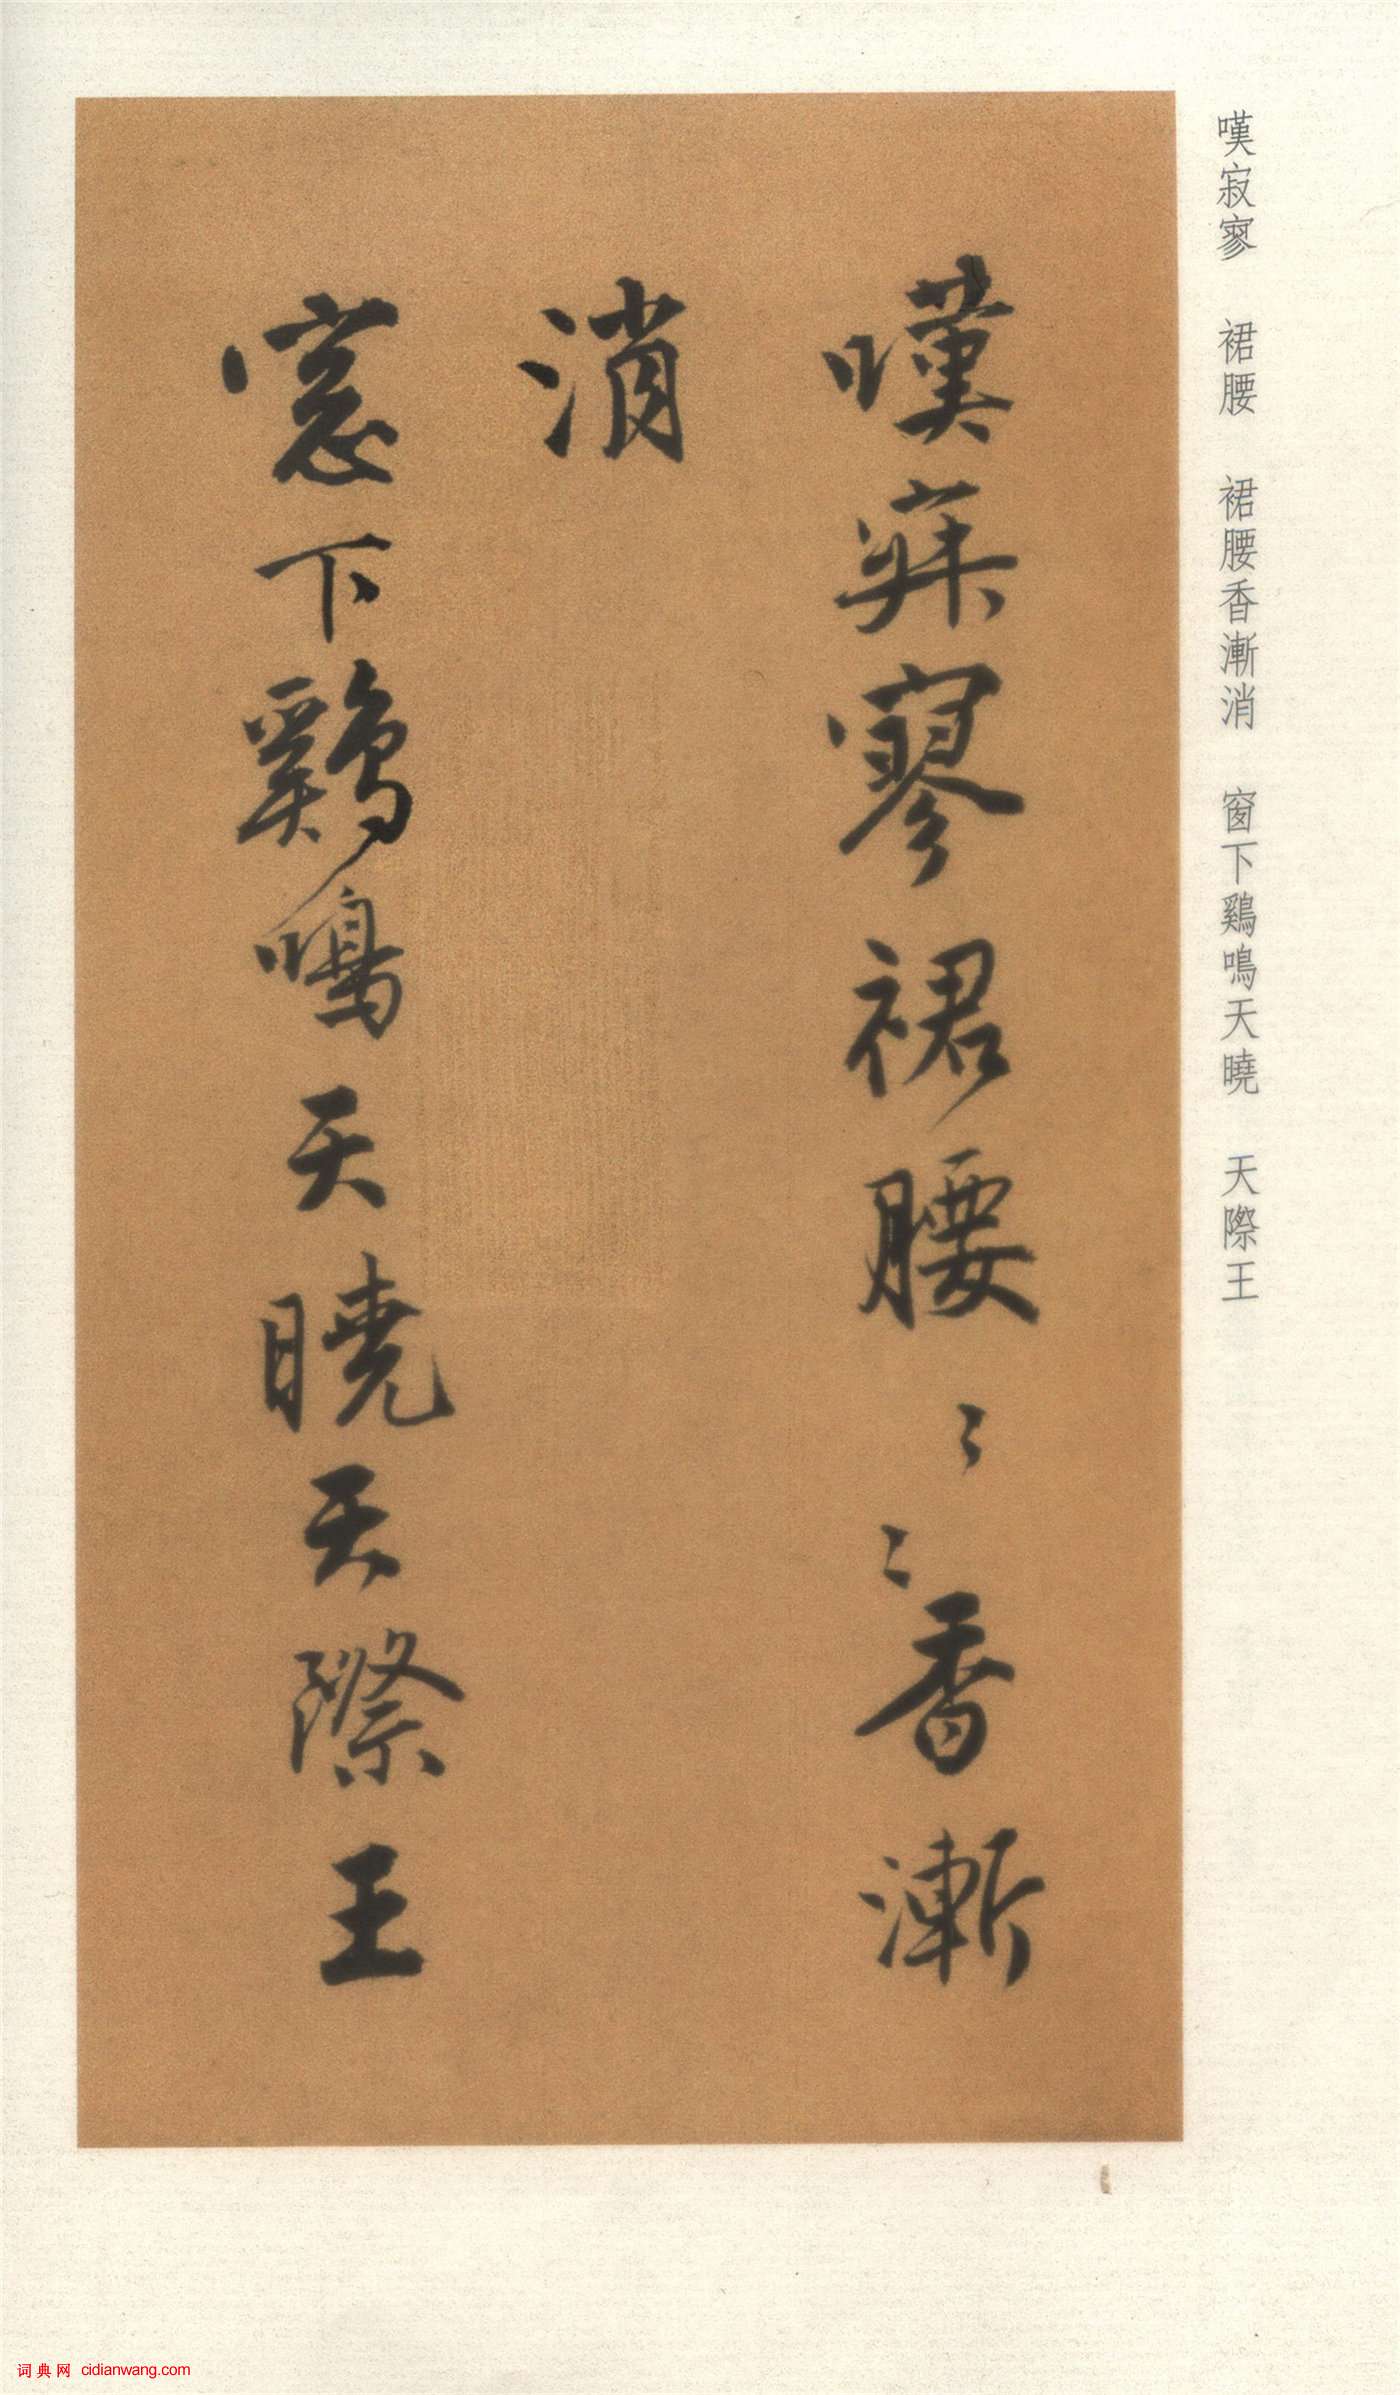 嘆寂寥　裙腰　裙腰香漸消　窗下鷄鳴天曉　天際王
嘆寂寥裙腰〻〻香漸
消
窓下鷄鳴天曉天際王
词典网 cidianwang.com